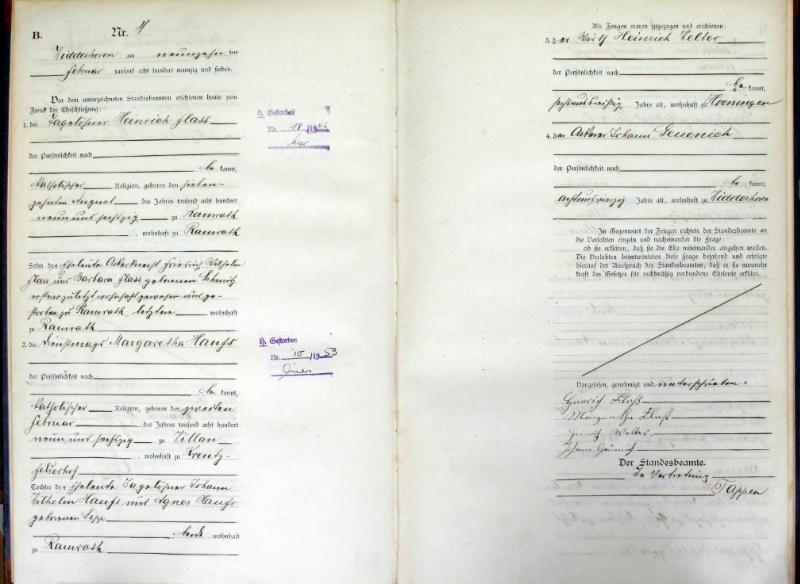 B.
Nr. 4
Widdeshoven am neunzehnten
Februar tausend acht hundert neunzig und sieben.
Vor dem unterzeichneten Standesbeamten erschienen heute zum
Zweck der Eheschließung:
1. der Tagelöhner Heinrich Flass
der Persönlichkeit nach
be kannt,
katholischer Religion, geboren den sieben-
zehnten August des Jahres tausend acht hundert
neun und sechzig zu Ramrath
, wohnhaft zu Ramrath
Sohn der Eheleute Ackerknecht Friedrich Wilhelm
Flass und Barbara Flass geborenen Schmitz
ersterer zuletzt wohnhaft gewesen und ge-
storben zu Ramrath, letztere wohnhaft
zu Ramrath
2. die Dienstmagd Margaretha Hauss
der Persönlichkeit nach
be kannt,
katholischer Religion, geboren den zweiten
Februar des Jahres tausend acht hundert
neun und sechzig zu Villau
, wohnhaft zu Kreutz-
Tochter der Eheleute Tagelöhner Johann
Wilhelm Hauss und Agnes Hauss
geborenen Esser
beide wohnhaft
zu Ramrath
H. Gestorben
Nr. 18/19
H. Gestorben
Nr. 10/1953
Als Zeugen waren zugezogen und erschienen:
3. der Wirth Heinrich Welter
der Persönlichkeit nach
be kannt,
sechsunddreißig Jahre alt, wohnhaft zu Hoeningen
4. der Ackerer Johann Geuenich
der Persönlichkeit nach
be kannt,
achtundvierzig Jahre alt, wohnhaft zu Widdeshoven
In Gegenwart der Zeugen richtete der Standesbeamte an
die Verlobten einzeln und nacheinander die Frage:
ob sie erklären, daß sie die Ehe miteinander eingehen wollen.
Die Verlobten beantworteten diese Frage bejahend und erfolgte
hierauf der Ausspruch des Standesbeamten, daß er sie nunmehr
kraft des Gesetzes für rechtmäßig verbundene Eheleute erkläre.
Vorgelesen, genehmigt und unterschrieben:
Heinrich Flaß
Margaretha Flaß
Heinrich Welter
Johann Geuenich
Der Standesbeamte.
In Vertretung
Tappen